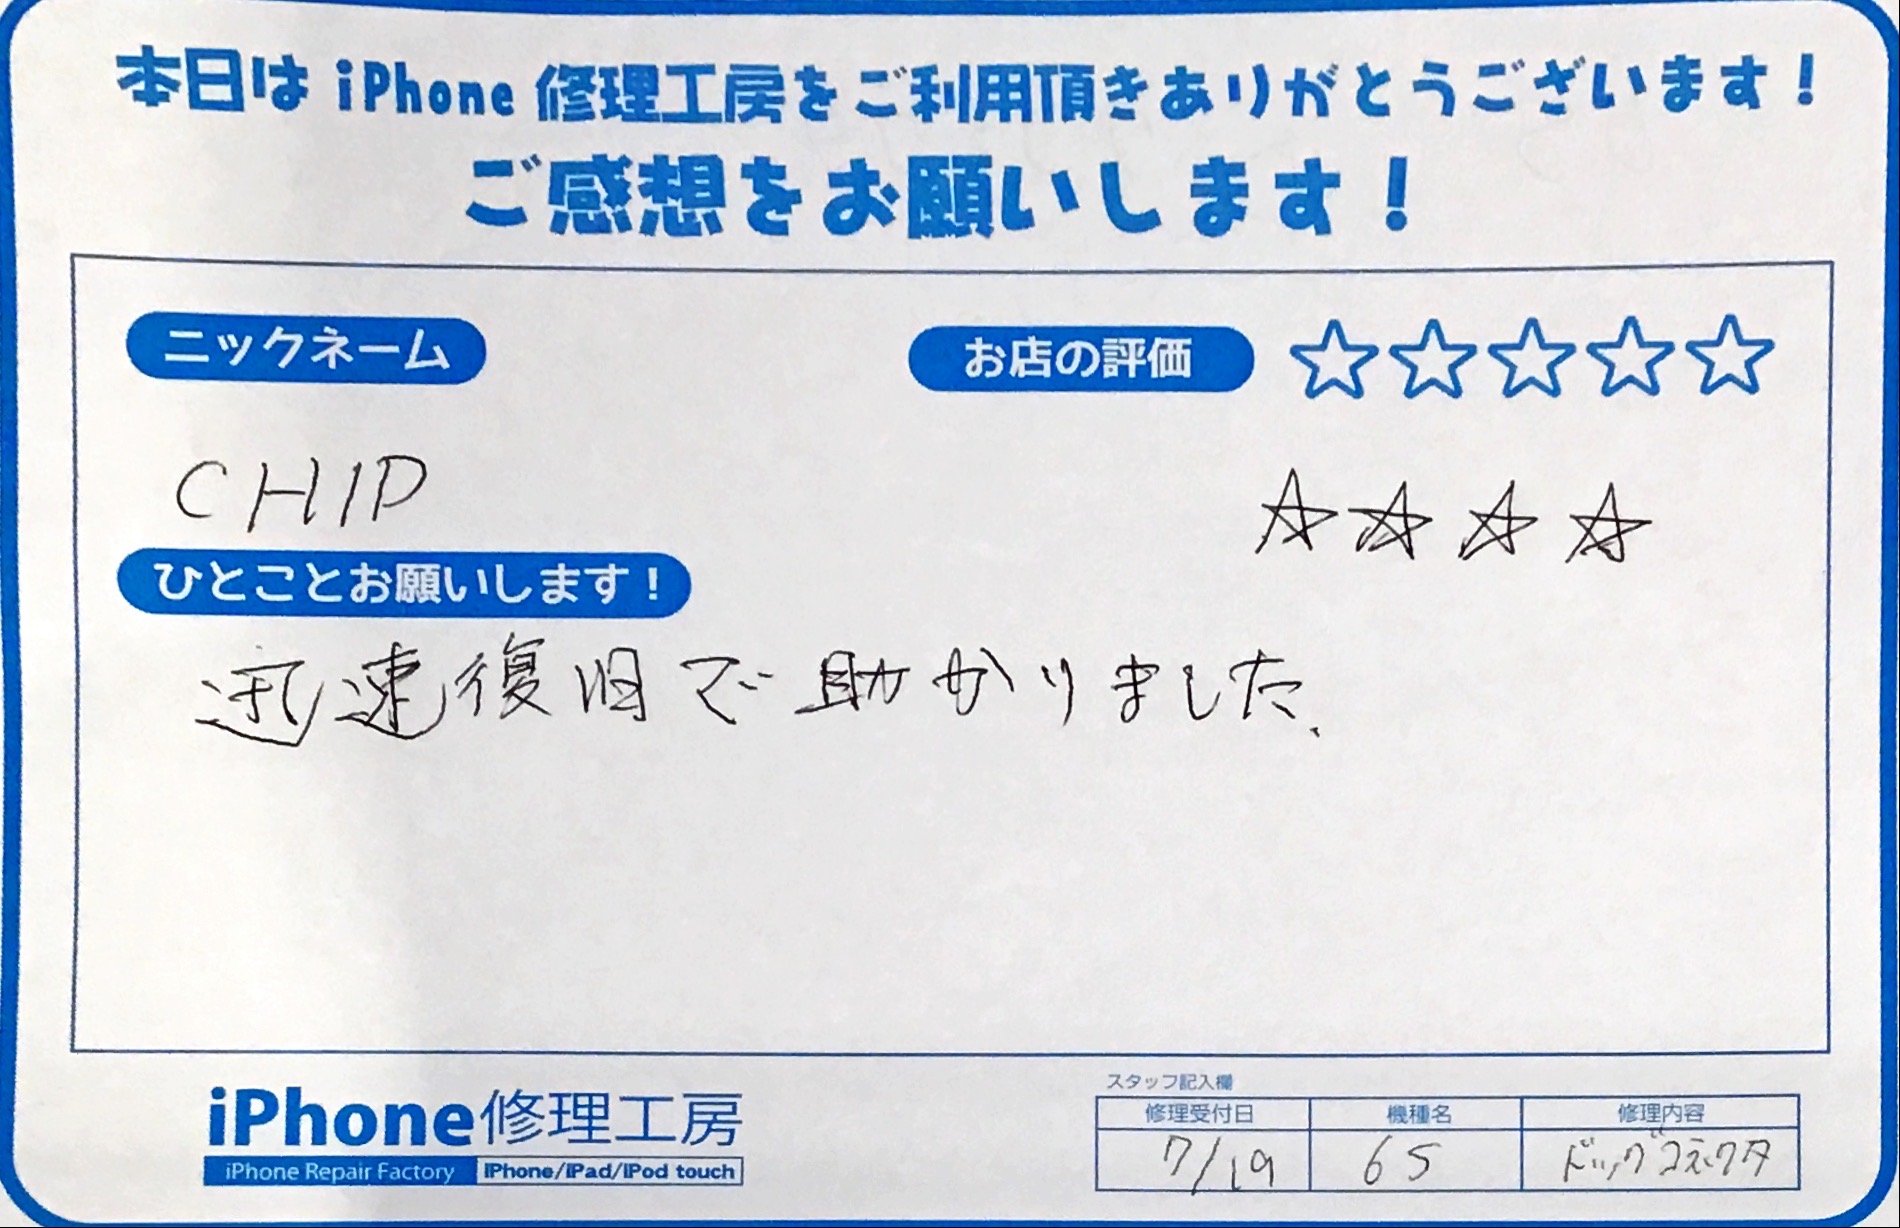 本日は iPhone 修理工房をご利用頂きありがとうございます！
ご感想をお願いします！
ニックネーム
お店の評価 ☆☆☆☆☆
CHIP
☆☆☆☆
ひとことお願いします！
迅速復旧で助かりました.
iPhone修理工房
iPhone Repair Factory iPhone/iPad/iPod touch
スタッフ記入欄
修理受付日 機種名 修理内容
7/19 6S ドックコネクタ